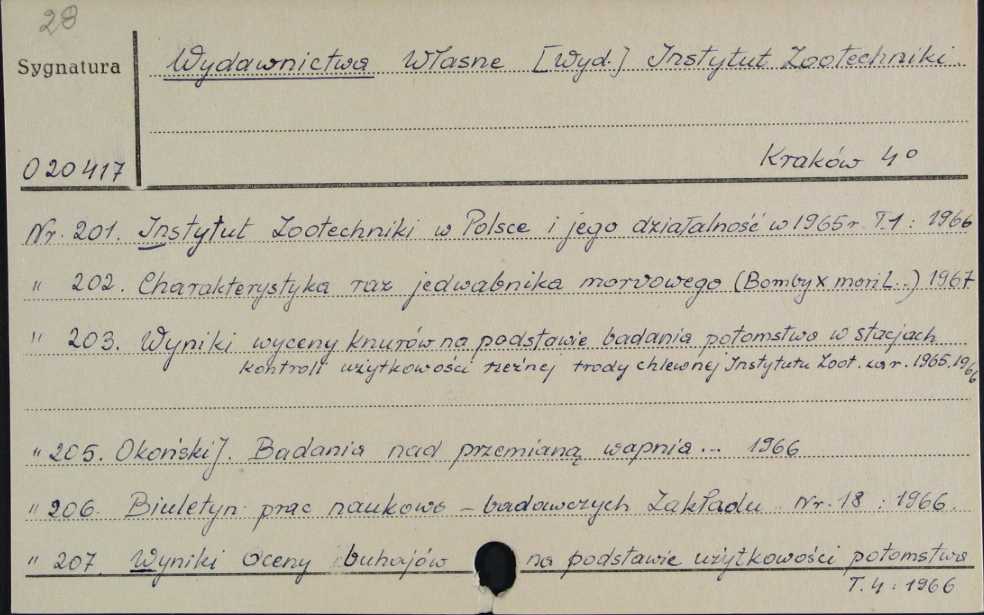 28
Sygnatura
Wydawnictwa Własne [Wyd.] Instytut Zootechniki.
020417
Kraków 4°
Nr. 201. Instytut Zootechniki w Polsce i jego działalność w 1965 r. T.1 : 1966
" 202. Charakterystyka ras jedwabnika morwowego (Bombyx mori L..) 1967
" 203. Wyniki wyceny knurów na podstawie badania potomstwa w stacjach
kontroli użytkowości rzeźnej trody chlewnej Instytutu Zoot. za r. 1965. 1966
" 205. Okoński J. Badania nad przemianą wapnia ... 1966
" 206. Biuletyn prac naukowo - badawczych Zakładu Nr. 18 : 1966.
" 207. Wyniki Oceny buhajów na podstawie użytkowości potomstwa
T. 4 : 1966